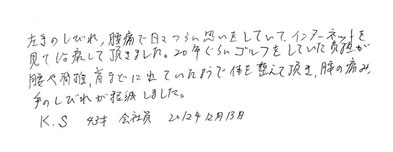 左手のしびれ、腰痛で日々つらい思いをしていて、インターネットを
見て治療して頂きました。20年ぐらいゴルフをしていた負担が
腰や背椎、首までに出ていたようで体を整えて頂き、腰の痛み、
手のしびれが軽減しました。
K.S 43才 会社員 2012年12月13日